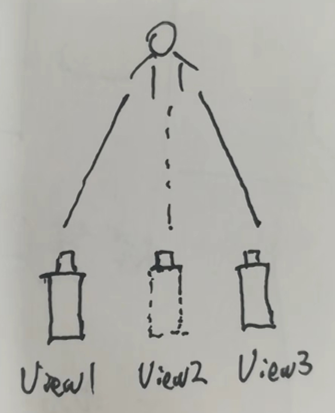 View1 View2 View3